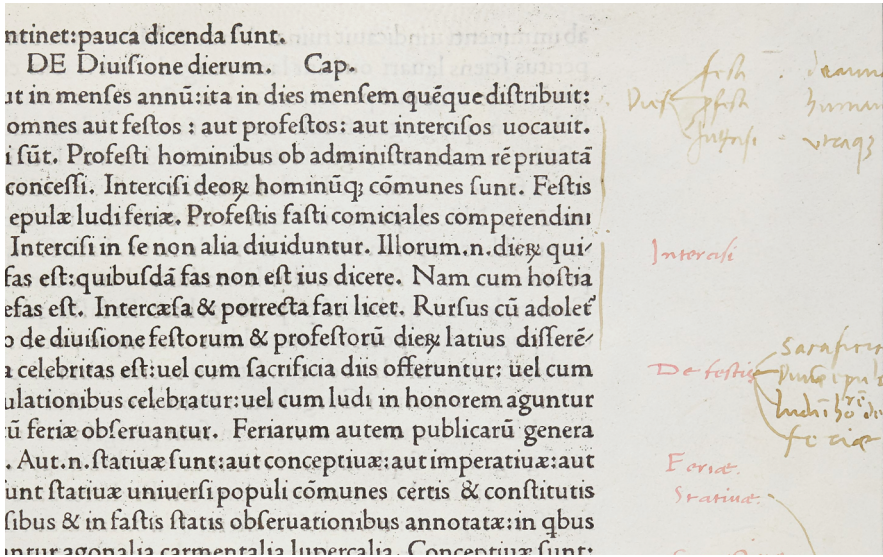 ntinet:pauca dicenda ſunt.
DE Diuiſione dierum. Cap.
ut in menſes annū:ita in dies menſem quēque diſtribuit:
omnes aut feſtos : aut profeſtos: aut interciſos uocauit.
i ſūt. Profeſti hominibus ob adminiſtrandam rē priuatā
conceſſi. Interciſi deoꝝ hominūqꝫ cōmunes ſunt. Feſtis
epulæ ludi feriæ. Profeſtis faſti comiciales comperendini
Interciſi in ſe non alia diuiduntur. Illorum.n.dieꝝ qui
fas eſt:quibuſdā fas non eſt ius dicere. Nam cum hoſtia
efas eſt. Intercæſa & porrecta fari licet. Rurſus cū adolet
o de diuiſione feſtorum & profeſtorū dieꝝ latius differē
a celebritas eſt:uel cum ſacrificia diis offeruntur: uel cum
ulationibus celebratur:uel cum ludi in honorem aguntur
ū feriæ obſeruantur. Feriarum autem publicarū genera
. Aut.n.ſtatiuæ ſunt:aut conceptiuæ:aut imperatiuæ:aut
unt ſtatiuæ uniuerſi populi cōmunes certis & conſtitutis
ſibus & in faſtis ſtatis obſeruationibus annotatæ:in qbus
antur agonalia carmentalia lupercalia. Conceptiuæ ſunt:
festi
Dies
Interciſi
De festis
feriæ
Feriæ.
Stativæ.